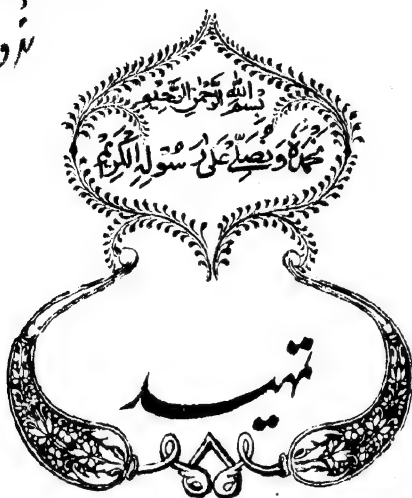 بِسْمِ اللهِ الرَّحْمٰنِ الرَّحِيْمِ
نَحْمَدُهٗ وَنُصَلِّيْ عَلٰى رَسُوْلِهِ الْكَرِيْمِ
تمہید